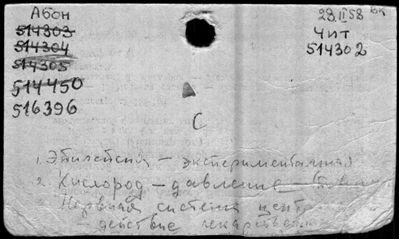 Абон
514303
514304
514305
514450
516396
28 II 58 вк
Чит
514302
С
1. Эпилепсия – экспериментальная
2. Кислород – давление –
Нервная система центр
– действие лекарств